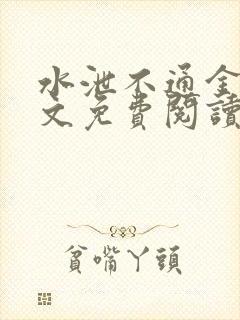 水泄不通全
文免費閱讀
貧嘴丫頭